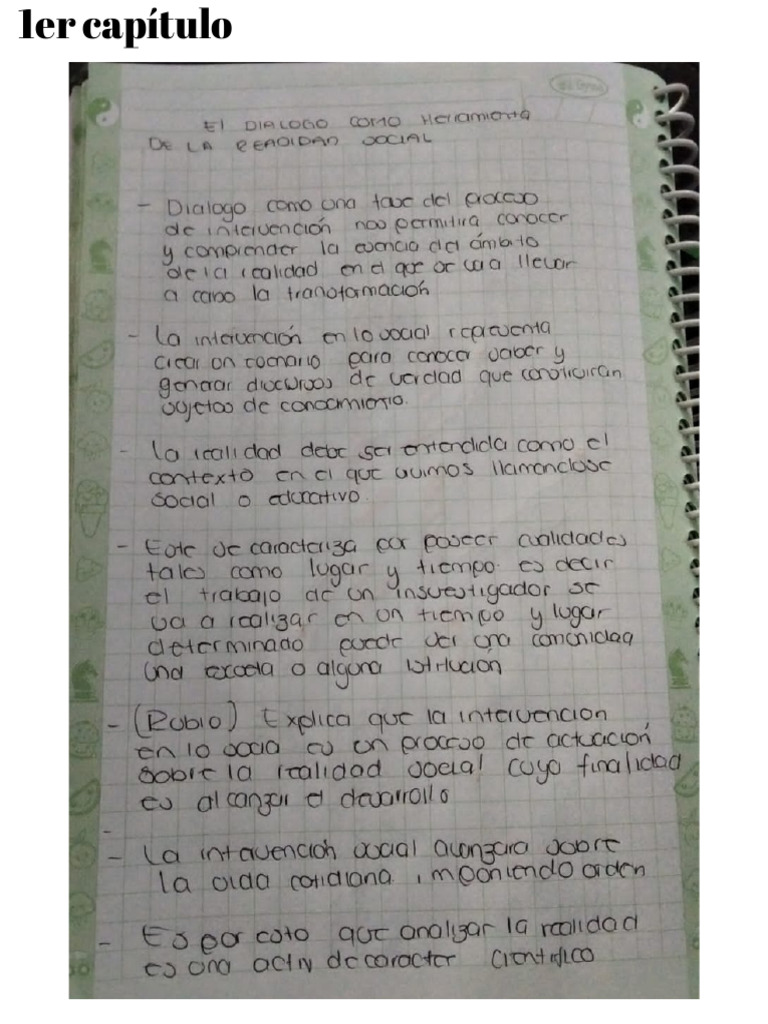 1er capítulo
El DIALOGO COMO Herramienta
DE LA REALIDAD SOCIAL
- Dialogo como una fase del proceso
de intervención nos permitira conocer
y comprender la esencia del ámbito
de la realidad en el que se va a llevar
a cabo la transformación
- La intervención en lo social representa
crear un escenario para conocer saber y
generar discursos de verdad que constituirán
sujetos de conocimiento.
- la realidad debe ser entendida como el
contexto en el que vivimos llamandose
social o educativo.
- Este se caracteriza por poseer cualidades
tales como lugar y tiempo. es decir
el trabajo de un insvestigador se
va a realizar en un tiempo y lugar
determinado puede ser una comunidad
una escuela o alguna istitución
- (Rubio) Explica que la intervencion
en lo socia es un proceso de actuación
sobre la realidad social cuya finalidad
es alcanzar el desarrollo
-
- La intervención social avanzara sobre
la vida cotidiana, imponiendo orden
- Es por esto que analizar la realidad
es una activ de caracter cientifico